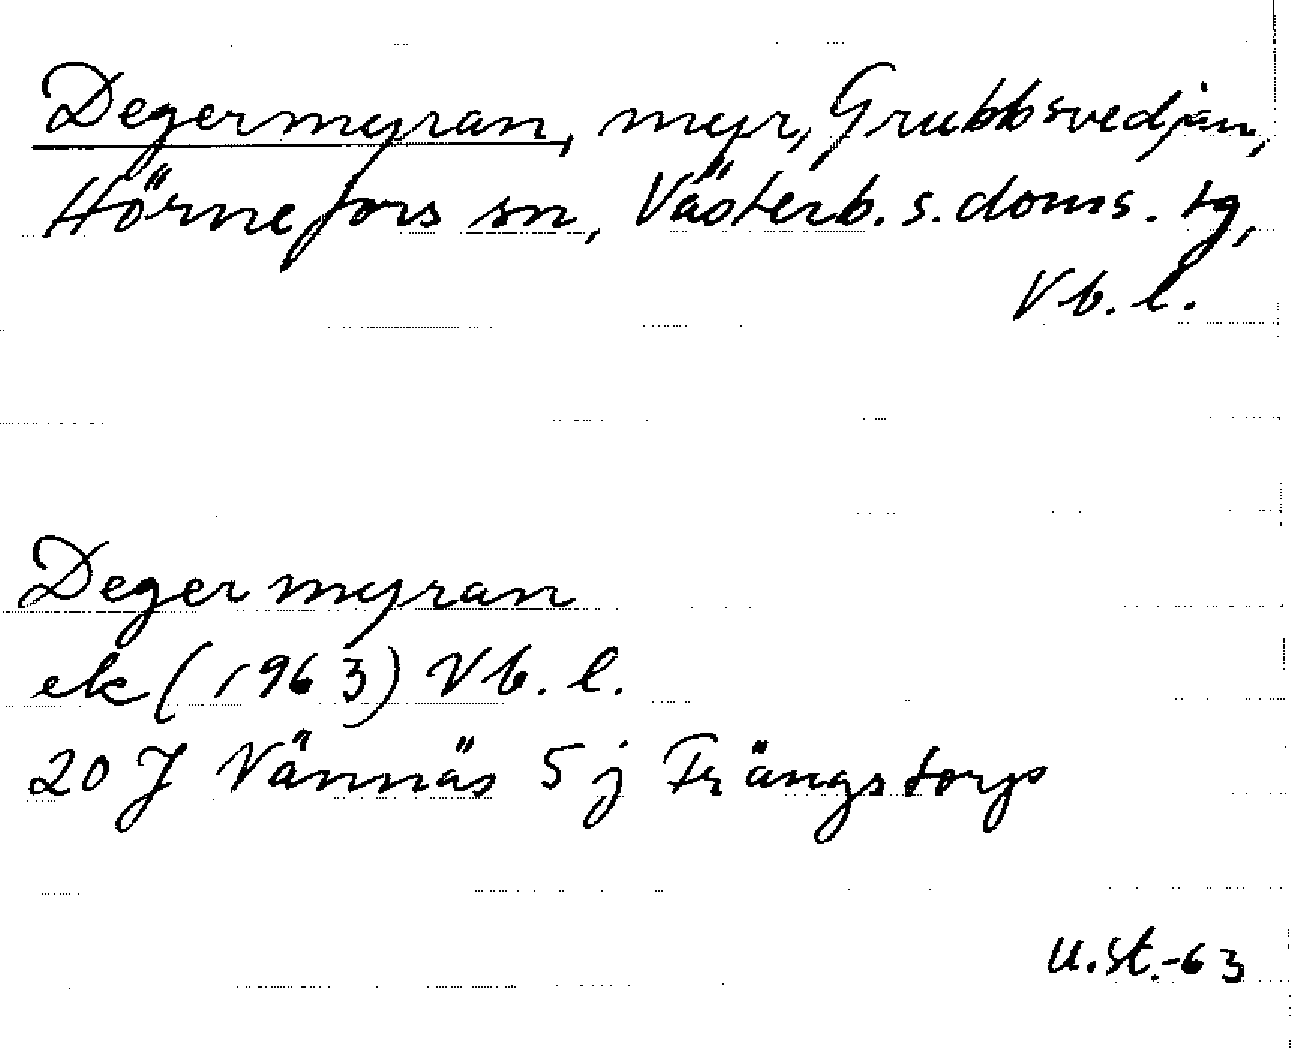 Degermyran, myr, Grubbsvedjan,
Hörnefors sn, Västerb. s. doms. tg,
Vb. l.
Degermyran
ek (1963) Vb. l.
20 J Vännäs 5 j Trängstorp
U.St.-63